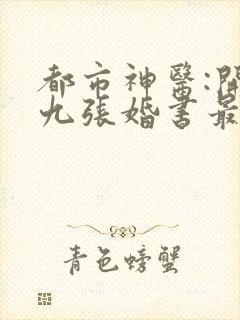 都市神醫:開
九張婚書最
青色螃蟹